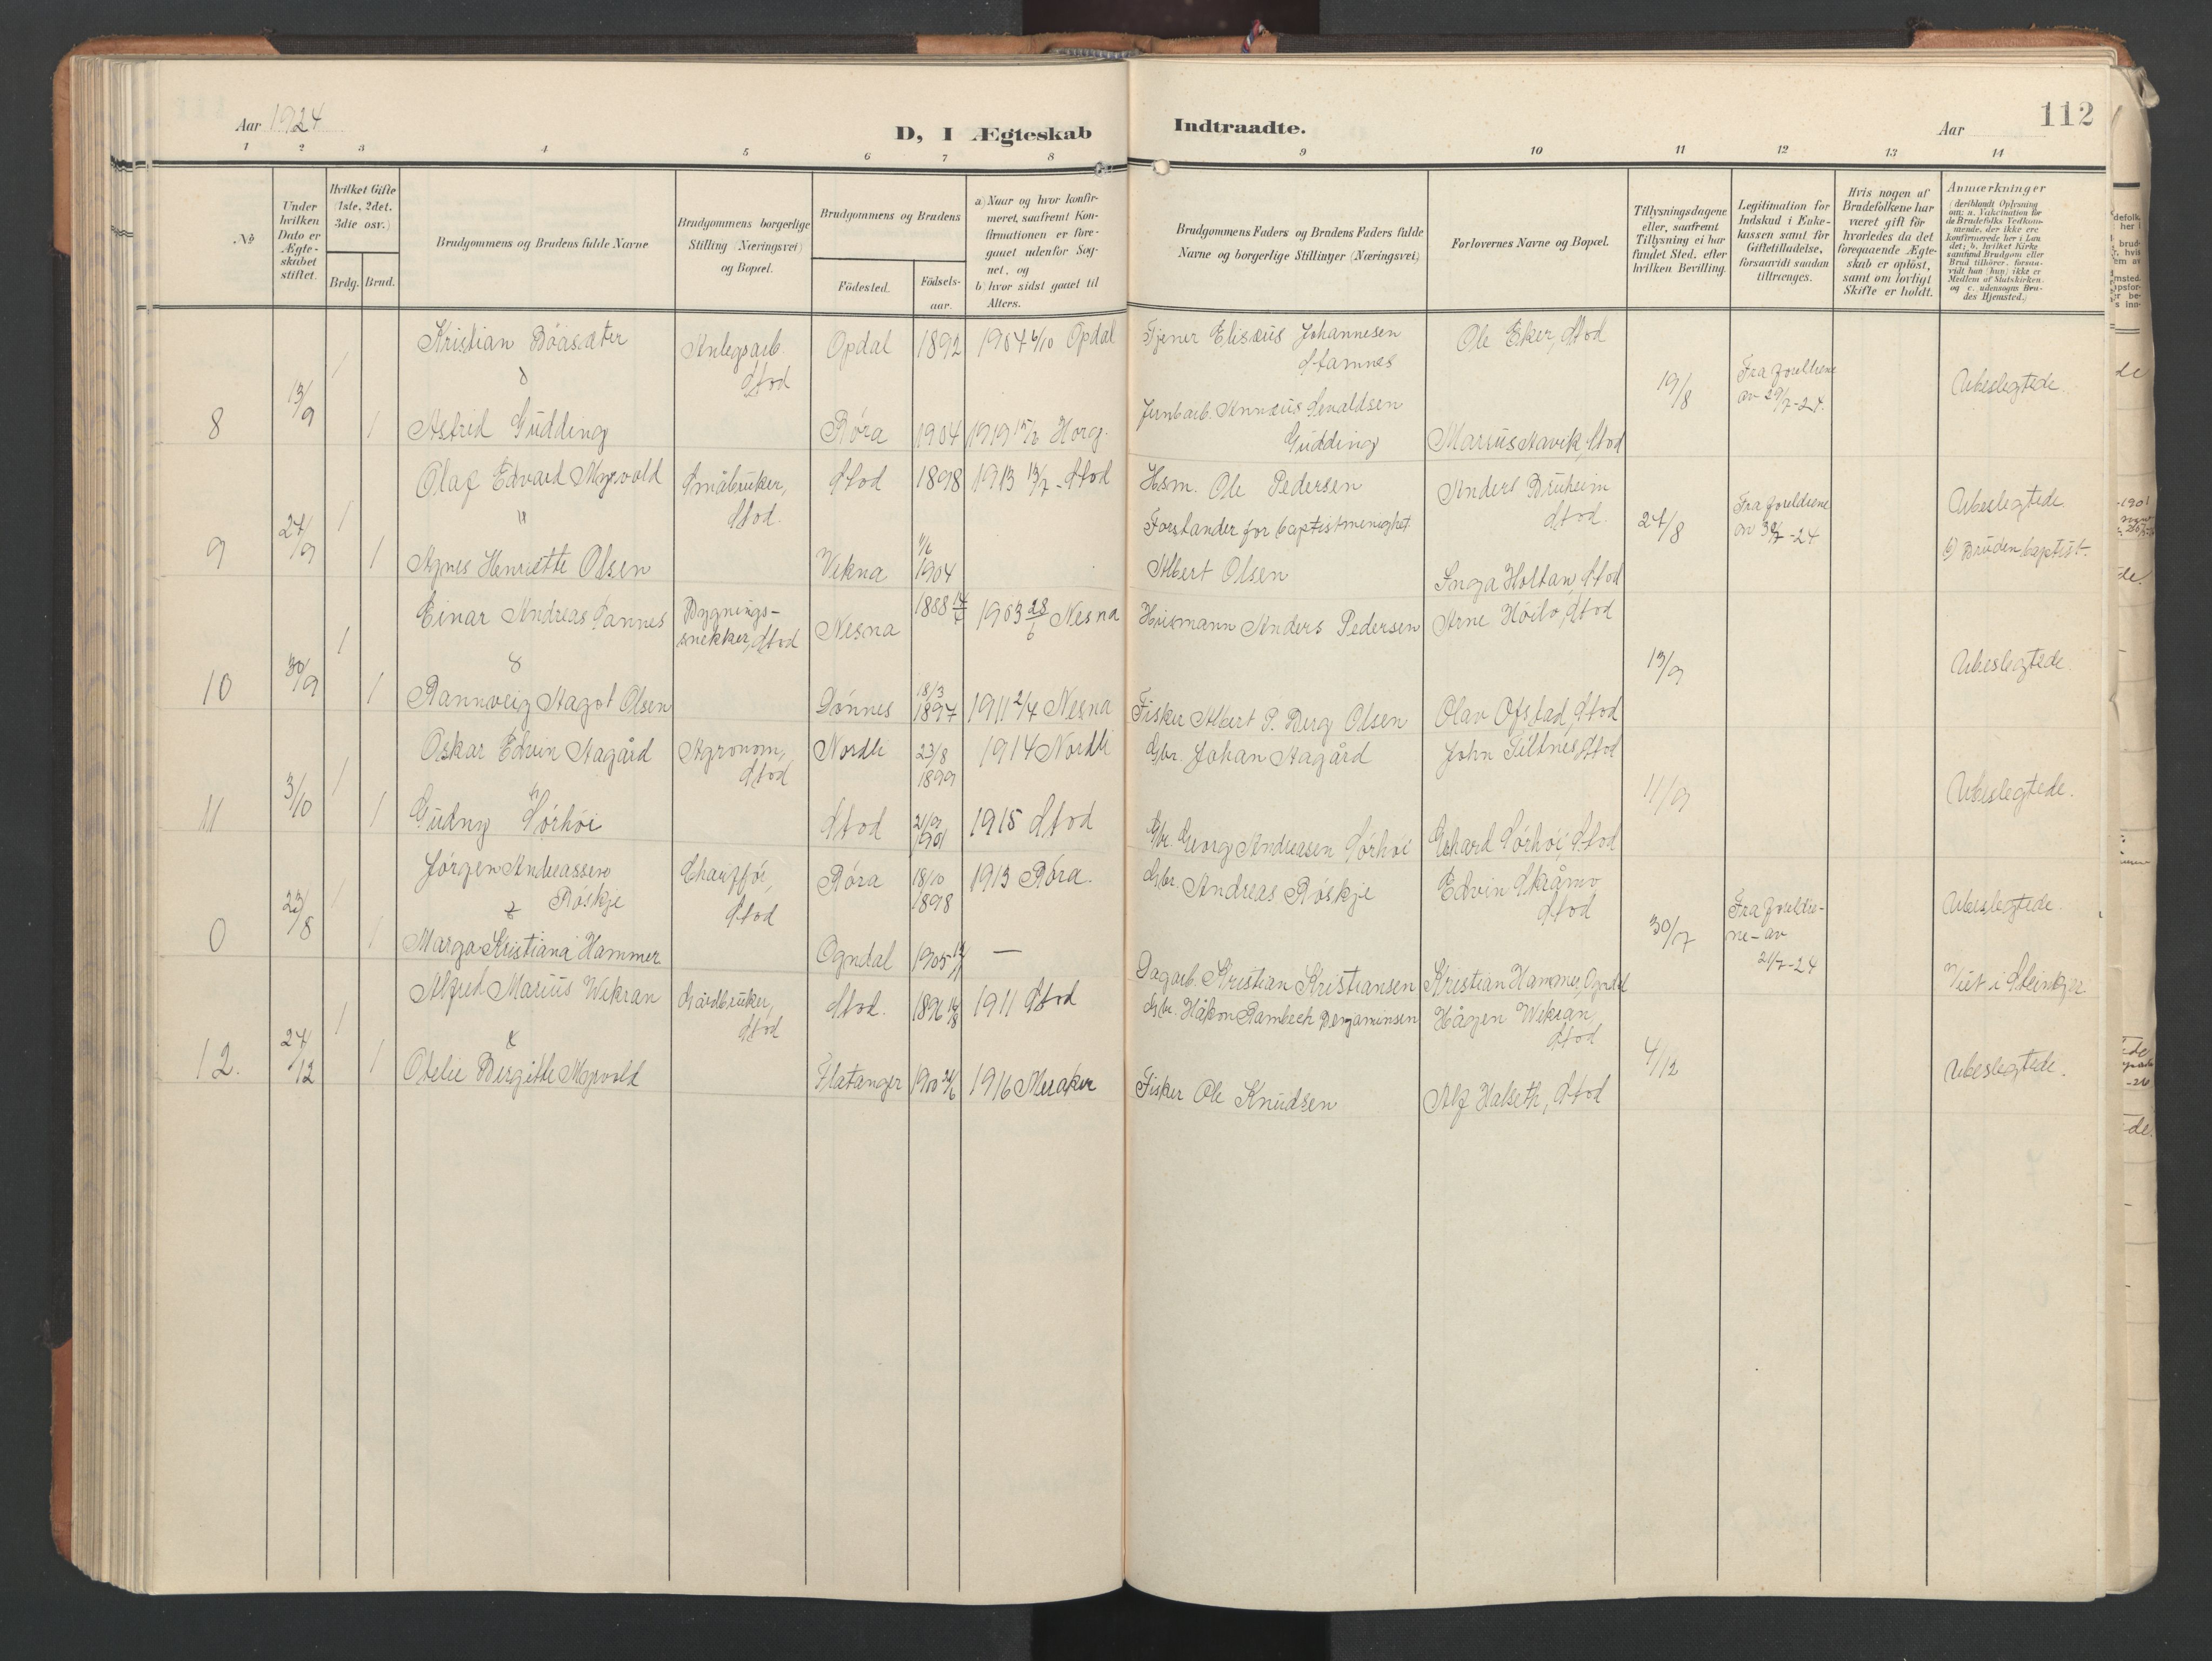 Aar 1924
D, I Ægteskab
Indtraadte.
Aar
112
1 2 3 4 5 6 7 8 9 10 11 12 13 14
No
Under hvilken Dato er Ægteskabet stiftet.
Hvilket Gifte (1ste, 2det, 3die osv.)
Brdg. Brud.
Brudgommens og Brudens fulde Navne
Brudgommens borgerlige Stilling (Næringsvei) og Bopæl.
Brudgommens og Brudens
Fødested.
Fødselsaar.
a) Naar og hvor konfirmeret, saafremt Konfirmationen er foregaaet udenfor Sognet, og
b) hvor sidst gaaet til Alters.
Brudgommens Faders og Brudens Faders fulde Navne og borgerlige Stillinger (Næringsvei)
Forlovernes Navne og Bopæl.
Tillysningsdagene eller, saafremt Tillysning ei har fundet Sted, efter hvilken Bevilling.
Legitimation for Indskud i Enkekassen samt for Giftetilladelse, forsaavidt saadan tiltrænges.
Hvis nogen af Brudefolkene har været gift før hvorledes da det foregaaende Ægteskab er opløst, samt om lovligt Skifte er holdt.
Anmærkninger (deriblandt Oplysning om: a. Vakcination for de Brudefolks Vedkommende, der ikke ere konfirmerede her i Landet; b. hvilket Kirkesamfund Brudgom eller Brud tilhører, forsaavidt han (hun) ikke er Medlem af Statskirken, og c. udensogns Brudes Hjemsted.)
8 13/9 1 Kristian Bøasæter Anlegsarb. Stod Opdal 1892 1907 6/10 Opdal Tjener Elisæus Johannesen Stamnes Ole Eker, Stod 19/8 Fra foreldrene av 29/7-24. Ubeslegtede.
&
1 Astrid Gudding Røra 1904 1919 15/6 Horg. Jernbarb. Annæus Sevaldsen Gudding Marius Navik, Stod
9 24/9 1 Olaf Edvard Møgvold Småbruker, Stod. Stod 1898 1913 13/7 - Stod Hsm. Ole Pedersen Anders Bruheim Stod. 24/8 Fra foreldrene av 30/7-24 Ubeslegtede.
"
1 Agnes Henriette Olsen Vikna 1/6 1904 Forstander for baptistmenighet. Albert Olsen Inga Holtan, Stod b) Bruden baptist.
10 30/9 1 Einar Andreas Pannes Bygningssnekker, Stod Nesna 1888 1903 28/6 Nesna Husmann Anders Pedersen Arne Høilo, Stod 13/9 Ubeslegtede.
&
1 Rannveig Aagot Olsen Dønnes 18/3 1897 1911 2/4 Nesna Fisker Albert P. Berg Olsen Olav Ofstad, Stod
11 3/10 1 Oskar Edvin Aagård Agronom, Stod Nordli 23/8 1899 1914 Nordli Gbr. Johan Aagård John Tiltnes, Stod 11/9 Ubeslegtede.
1 Gudny Sørhøi Stod 21/9 1901 1915 Stod Gbr. Georg Andreasen Sørhøi Gerhard Sørhøi, Stod
0 23/8 1 Jørgen Andreassen Røskje Chauffør, Stod Røra 18/10 1898 1913 Røra. Gbr. Andreas Røskje Edvin Skråmo Stod 30/7 Fra foreldrene - av 21/7-24 Ubeslegtede.
&
1 Marga Kristiana Hammer Ogndal 1905 — Dagarb. Kristian Kristiansen Kristian Hammer, Ogndal Viet i Steinkjer
12. 24/12 1 Alfred Marius Wekran Gårdbruker, Stod Stod. 1896 1911 Stod Gbr. Håkon Rambech Benjaminsen Hågen Wekran, Stod 4/12 Ubeslegtede.
&
1 Otelie Bergitte Møgvold Flatanger 1900 1916 Meraker Fisker Ole Knudsen Alf Halseth, Stod